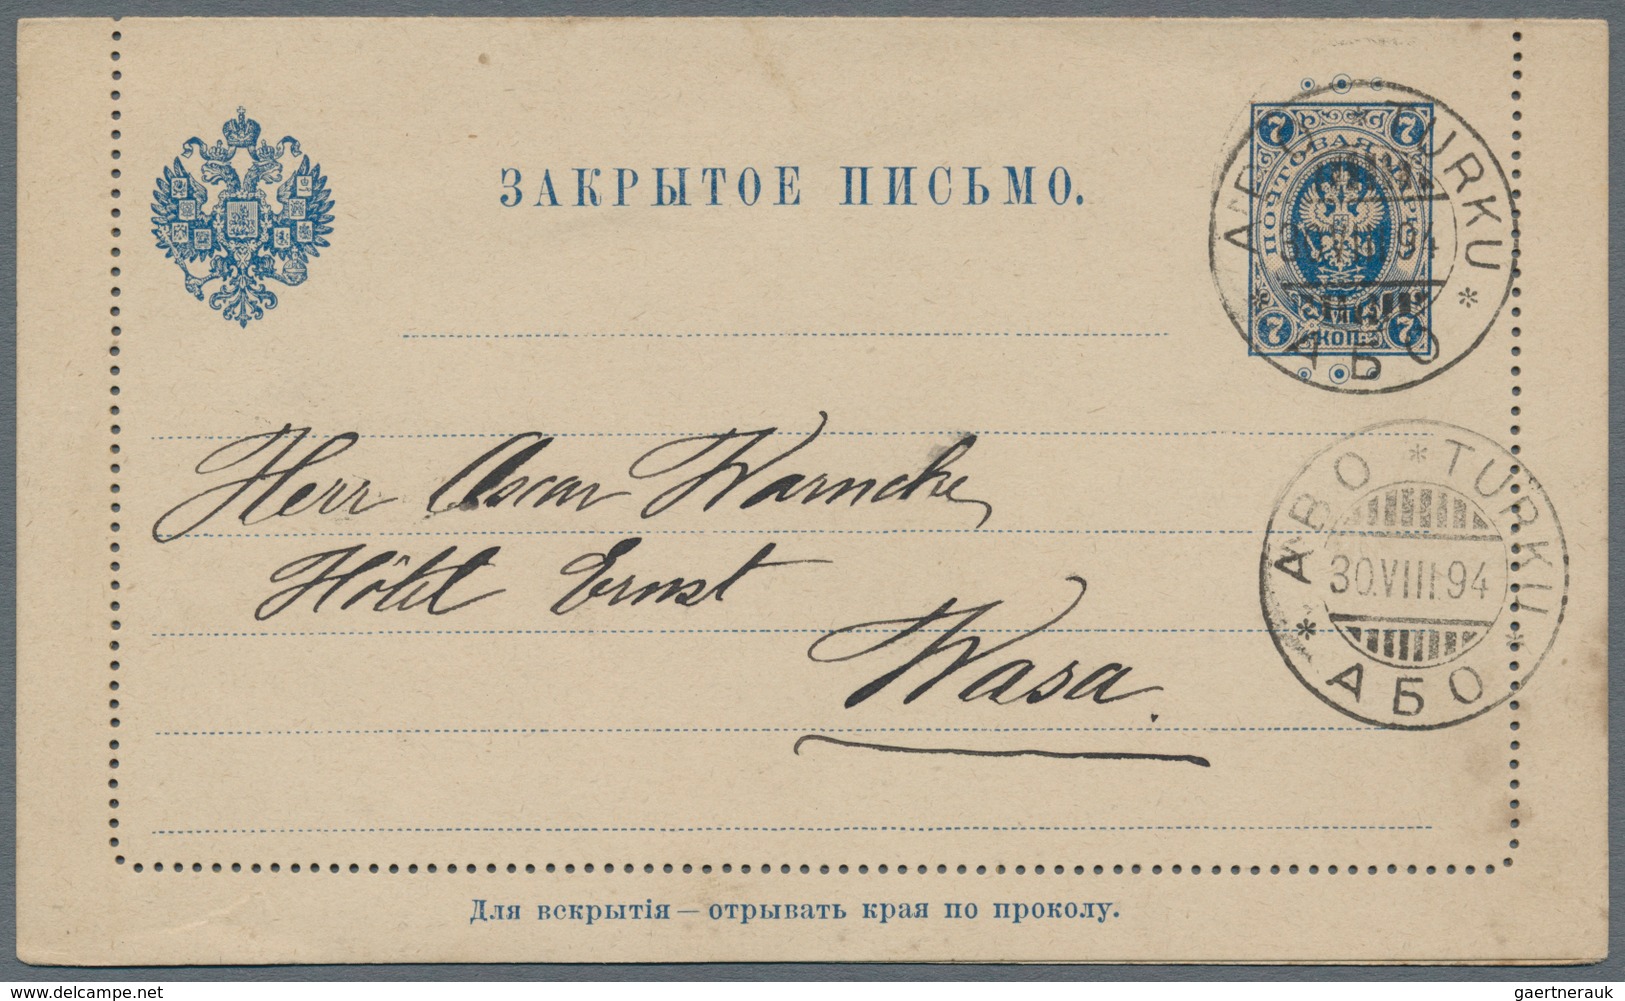 ЗАКРЫТОЕ ПИСЬМО.
7 7
ПОЧТОВАЯ МАРКА
7 7
КОП.
* TURKU *
94
АБО
Herr Oscar Warncke
Hôtel Ernst
Wasa.
ÅBO * TURKU *
30.VIII.94
* АБО
Для вскрытія — отрывать края по проколу.
www.delcampe.net
gaertnerauk